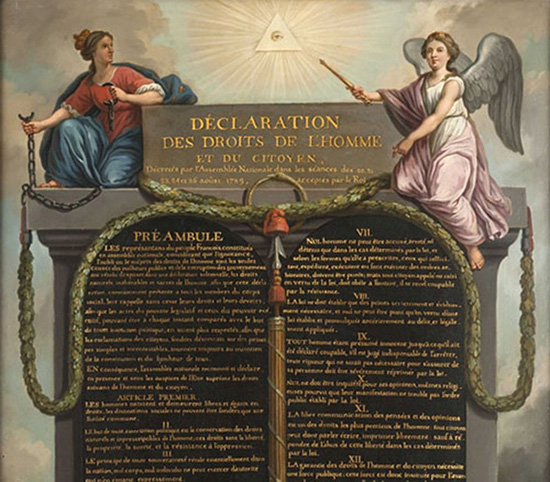 DÉCLARATION
DES DROITS DE L'HOMME
ET DU CITOYEN,
Décretés par l'Assemblée Nationale dans les séances des 20, 21
23, 24 et 26 août 1789, acceptés par le Roi
PRÉAMBULE
LES représentans du peuple Francois, constitués
en assemblée nationale, considérant que l'ignorance,
l'oubli ou le mépris des droits de l'homme sont les seules
causes des malheurs publics et de la corruption des gouvernemens
ont résolu d'exposer dans une déclaration solemnelle, les droits
naturels, inaliénables et sacrés de l'homme: afin que cette décla-
ration, constamment présente à tous les membres du corps
social, leur rappelle sans cesse leurs droits et leurs devoirs;
afin que les actes du pouvoir législatif et ceux du pouvoir exé-
cutif, pouvant être à chaque instant comparés avec le but
de toute institution politique, en soient plus respectés; afin que
les réclamations des citoyens, fondées désormais sur des princi-
pes simples et incontestables, tournent toujours au maintien
de la constitution et du bonheur de tous.
EN conséquence, l'assemblée nationale reconnoit et déclare
en présence et sous les auspices de l'Etre suprême les droits
suivans de l'homme et du citoyen.
ARTICLE PREMIER.
LES hommes naissent et demeurent libres et égaux en
droits, les distinctions sociales ne peuvent être fondées que sur
l'utilité commune.
II.
LE but de toute association politique est la conservation des droits
naturels et imprescriptibles de l'homme; ces droits sont la liberté,
la propriété, la sureté, et la résistance à l'oppression.
III.
LE principe de toute souveraineté réside essentiellement dans
la nation, nul corps, nul individu ne peut exercer d'autorité
qui n'en émane expressément.
VII.
NUL homme ne peut être accusé, arreté, ni
détenu que dans les cas déterminés par la loi, et
selon les formes qu'elle a prescrites, ceux qui sollici-
tent, expédient, exécutent ou font exécuter des ordres ar-
bitraires, doivent être punis; mais tout citoyen appelé ou saisi
en vertu de la loi, doit obéir à l'instant, il se rend coupable
par la résistance.
VIII.
LA loi ne doit établir que des peines strictement et évidem-
ment nécessaires, et nul ne peut être puni qu'en vertu d'une
loi établie et promulguée antérieurement au délit, et légale-
ment appliquée.
IX.
TOUT homme étant présumé innocent jusqu'à ce qu'il ait
été déclaré coupable, s'il est jugé indispensable de l'arrêter,
toute rigueur qui ne serait pas nécessaire pour s'assurer de
sa personne doit être sévèrement réprimée par la loi.
X.
NUL ne doit être inquiété pour ses opinions, mêmes religi-
euses pourvu que leur manifestation ne trouble pas l'ordre
public établi par la loi.
XI.
LA libre communication des pensées et des opinions
est un des droits les plus précieux de l'homme: tout citoyen
peut donc parler, écrire, imprimer librement: sauf à ré-
pondre de l'abus de cette liberté dans les cas déterminés
par la loi.
XII.
LA garantie des droits de l'homme et du citoyen nécessite
une force publique; cette force est donc instituée pour l'avan-